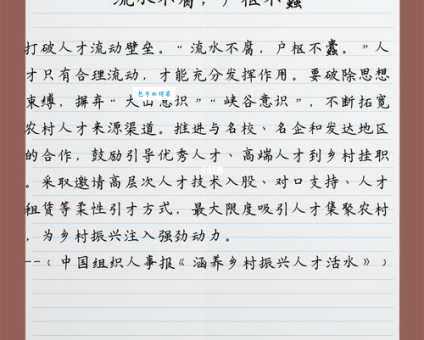 流水不腐，户枢不蠹
打破人才流动壁垒。“流水不腐，户枢不蠹。”人
才只有合理流动，才能充分发挥作用。要破除思想
束缚，摒弃“大山意识”“峡谷意识”，不断拓宽
农村人才来源渠道。推进与名校、名企和发达地区
的合作，鼓励引导优秀人才、高端人才到乡村挂职
。采取邀请高层次人才技术入股、对口支持、人才
租赁等柔性引才方式，最大限度吸引人才集聚农村
，为乡村振兴注入强劲动力。
--（中国组织人事报《涵养乡村振兴人才活水》）